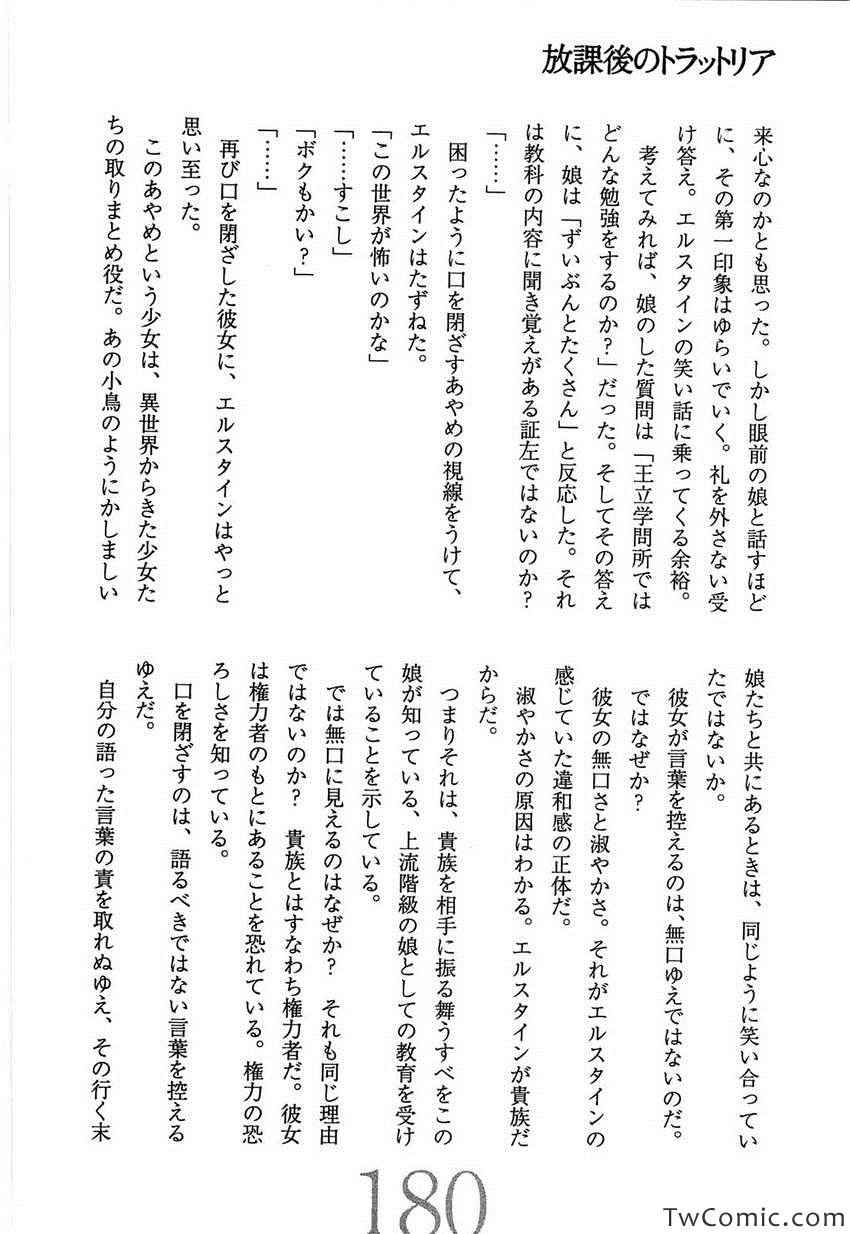 放課後のトラットリア
来心なのかとも思った。しかし眼前の娘と話すほど
に、その第一印象はゆらいでいく。礼を外さない受
け答え。エルスタインの笑い話に乗ってくる余裕。
考えてみれば、娘のした質問は「王立学問所では
どんな勉強をするのか?」だった。そしてその答え
に、娘は「ずいぶんとたくさん」と反応した。それ
は教科の内容に聞き覚えがある証左ではないのか?
「……」
困ったように口を閉ざすあやめの視線をうけて、
エルスタインはたずねた。
「この世界が怖いのかな」
「……すこし」
「ボクもかい?」
「……」
再び口を閉ざした彼女に、エルスタインはやっと
思い至った。
このあやめという少女は、異世界からきた少女た
ちの取りまとめ役だ。あの小鳥のようにかしましい
娘たちと共にあるときは、同じように笑い合ってい
たではないか。
彼女が言葉を控えるのは、無口ゆえではないのだ。
ではなぜか?
彼女の無口さと淑やかさ。それがエルスタインの
感じていた違和感の正体だ。
淑やかさの原因はわかる。エルスタインが貴族だ
からだ。
つまりそれは、貴族を相手に振る舞うすべをこの
娘が知っている、上流階級の娘としての教育を受け
ていることを示している。
では無口に見えるのはなぜか? それも同じ理由
ではないのか? 貴族とはすなわち権力者だ。彼女
は権力者のもとにあることを恐れている。権力の恐
ろしさを知っている。
口を閉ざすのは、語るべきではない言葉を控える
ゆえだ。
自分の語った言葉の責を取れぬゆえ、その行く末
180
More manga at:
TwComic.com